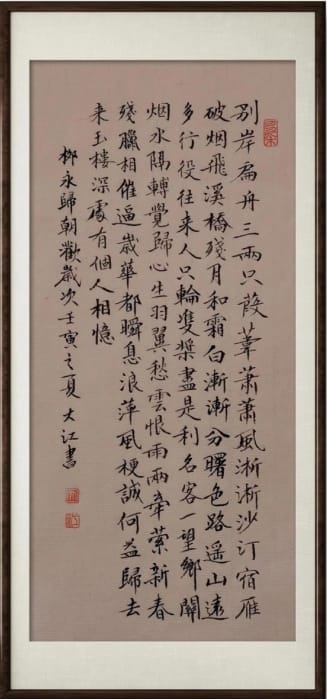 別岸扁舟三兩只葭葦蕭蕭風淅淅沙汀宿雁
破烟飛溪橋殘月和霜白漸漸分曙色路遥山遠
多行役往来人只輪雙槳盡是利名客一望鄉關
烟水隔轉覺歸心生羽翼愁雲恨雨兩牽縈新春
殘臘相催逼歲華都瞬息浪萍風梗誠何益歸去
来玉樓深處有個人相憶
柳永歸朝歡歲次壬寅之夏大江書